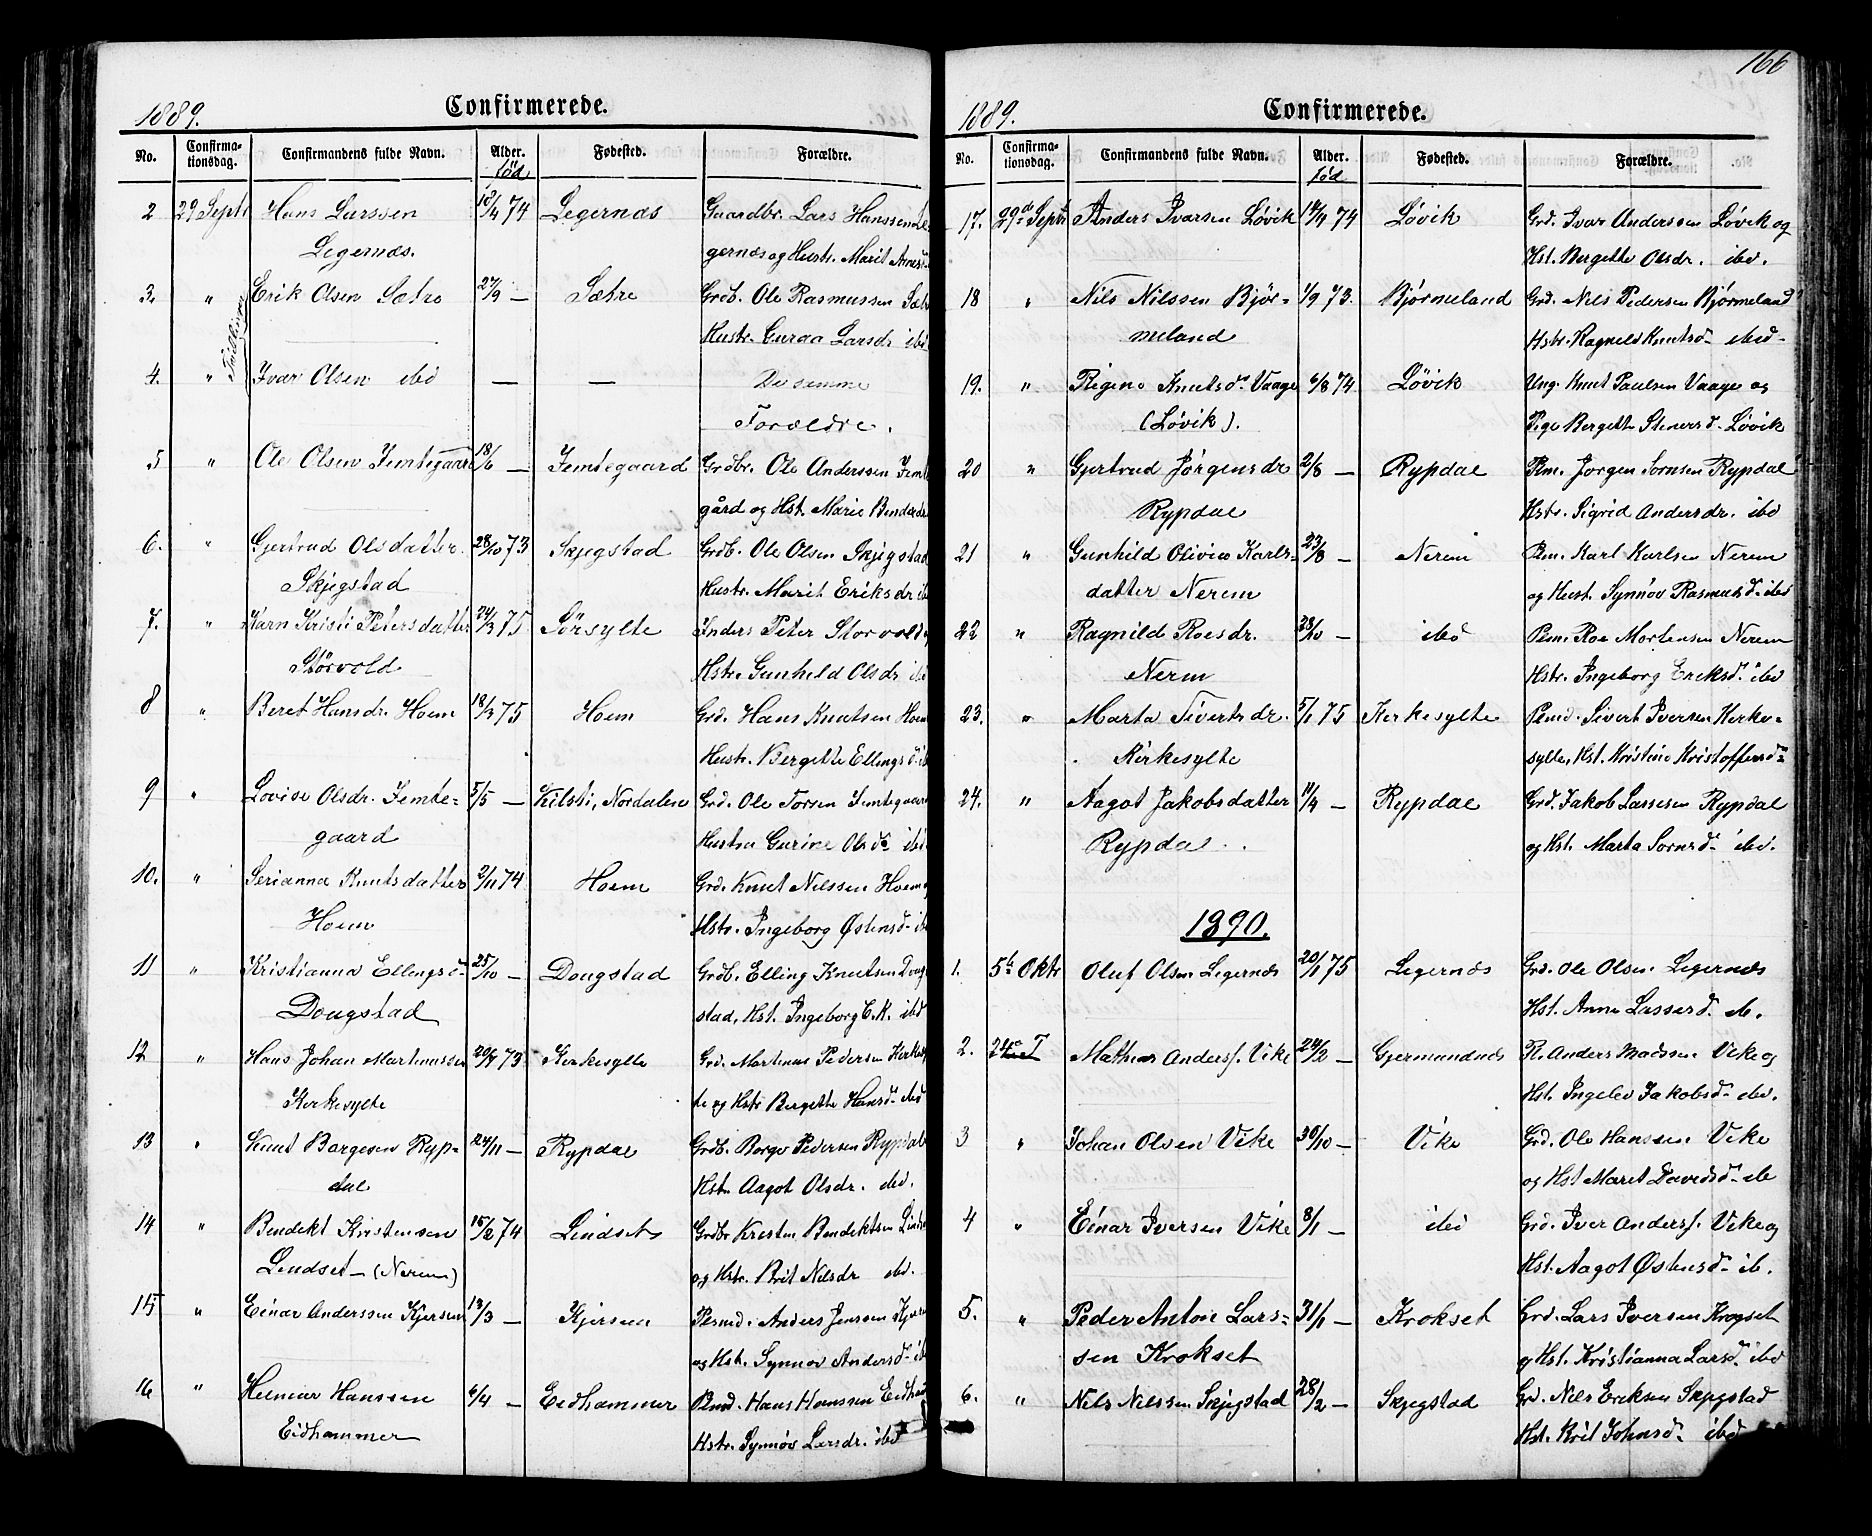 1889. Confirmerede.
No. Confirmationsdag. Confirmandens fulde Navn. Alder. Fødested. Forældre.
fød
2 29 Septr Hans Larssen 10/4 74 Legernæs Gaardbr. Lars Hanssen Le-
Legernæs. gernæs og Hustr. Marit Arnesd
3. " Erik Olsen Sætre 27/9 — Sætre Grdb. Ole Rasmussen Sætre
Hustr. Guraa Larsdr ibd
Tvillinger
4. " Ivar Olsen ibd — — De samme
Forældre.
5 " Ole Olsen Jemtegaard 18/6 — Jemtegaard Grdbr. Ole Anderssen Jemte
gård og Hst. Marie Bendesdr
6. " Gjertrud Olsdatter 28/10 73 Skjegstad Grdb. Ole Olsen Skjegstad
Skjegstad Hustr. Marit Eriksdr ibd
7. " Karn Kristi Petersdatter 24/3 75 Sörsylte Inders Peter Storvold
Störvold Hstr. Gunhild Olsdr ibd
8 " Beret Hansdr. Hoem 18/3 75 Hoem Grd. Hans Knutsen Hoem
Hustr. Bergitte Ellingsd ib
9 " Lovise Olsdr. Jemte- 5/5 — Kilsti, Nordalen Grd. Ole Torsen Jemtegaard
gaard Hustru Gurine Olsd ibd.
10. " Serianna Knutsdatter 2/11 74 Hoem Grd. Knut Nilssen Hoem
Hoem Hstr. Ingeborg Østensd ib
11 " Kristianna Ellingsd 25/10 — Dougstad Grdb. Elling Knutsen Doug
Dougstad stad, Hst. Ingeborg E.K. ibd
12 " Hans Johan Martinussen 20/7 73 Kirkesylte Grd. Martinus Pedersen Kirkesyl
Kirkesylte te og Hstr Bergette Hansd ibd
13 " Knut Borgesen Ryp- 24/11 — Rypdal Grdb. Borge Pedersen Rypdal
dal Hstr Aagot Olsdr. ibd.
14 " Bendekt Kristensen 15/2 74 Lindset Grdbr Kresten Bendektsen Linds
Lindset (Nerem) og Hstr. Brit Nilsdr ibd.
15 " Einar Anderssen Kjersem 13/3 — Kjersem Plsmd. Anders Jenssen Kjersem
og Hst. Synnøv Andersd ib
16 " Helmar Hanssen 6/4 — Eidhammer Plmd. Hans Hanssen Eidham
Eidhammer Hstr. Synnöv Larsdr. ibd
166
1889. Confirmerede.
No. Confirmationsdag. Confirmandens fulde Navn. Alder. Fødested. Forældre.
fød
17. 29d Septr Anders Ivarsen Løvik 14/4 74 Løvik Grd. Ivar Anderssen Løvik og
Hst. Bergette Olsdr. ibd.
18 " Nils Nilssen Björ- 1/9 73. Bjørmeland Grd. Nils Pedersen Bjørmeland
meland Hstr. Ragnild Knutsd ibd
19. " Rigine Knutsd Vaage 6/8 74 Løvik Ung. Knut Paulsen Vaage og
(Løvik). Pige Bergette Steinersd. Løvik
20 " Gjertrud Jörgensdr 2/8 — Rypdal Plm. Jorgen Sornsen Rypdal
Rypdal Hstr. Sigrid Andersdr. ibd
21 " Gunhild Olivia Karls- 23/8 — Nerem Plm. Karl Karlsen Nerem
datter Nerem og Hust. Synnöv Rasmusd. ibd
22 " Ragnild Roesdr. 28/10 — ibd Plm. Roe Mortensen Nerem
Nerem Hstr. Ingeborg Eriksd ibd
23. " Marta Sivertsdr. 5/1 75 Kirkesylte Plmd. Sivert Iversen Kirke-
Kirkesylte sylte, Hst. Kristine Kristoffersd
24. " Aagot Jakobsdatter 11/4 — Rypdal Grd. Jakob Lassesen Rypdal
Rypdal og Hst. Marta Sornsd ibd.
1890.
1. 5t Oktr Oluf Olsen Legernæs 20/1 75 Legernæs Grd. Ole Olsen Legernæs
Hst. Anne Lassesd ib.
2. Mathias Anders. Vike 22/2 — Gjermundnæs Anders Madssen Vike og
Hst. Ingelev Jakobsd ibd.
3 " Johan Olsen Vike 30/10 — Vike Grd. Ole Hanssen Vike
og Hst Maret Davidsd ib
4 " Einar Iversen Vike 8/1 — ibd Grd. Iver Anders. Vike og
Hst. Aagot Østensd ib.
5. " Peder Anton Lars- 31/1 — Krokset Grd. Lars Iversen Krogset
sen Krokset og Hst. Kristianna Larsd. ibd
6. " Nils Nilssen Skjegstad 28/2 — Skjegstad Grd. Nils Eriksen Skjegstad
Hst. Brit Johnsd ibd